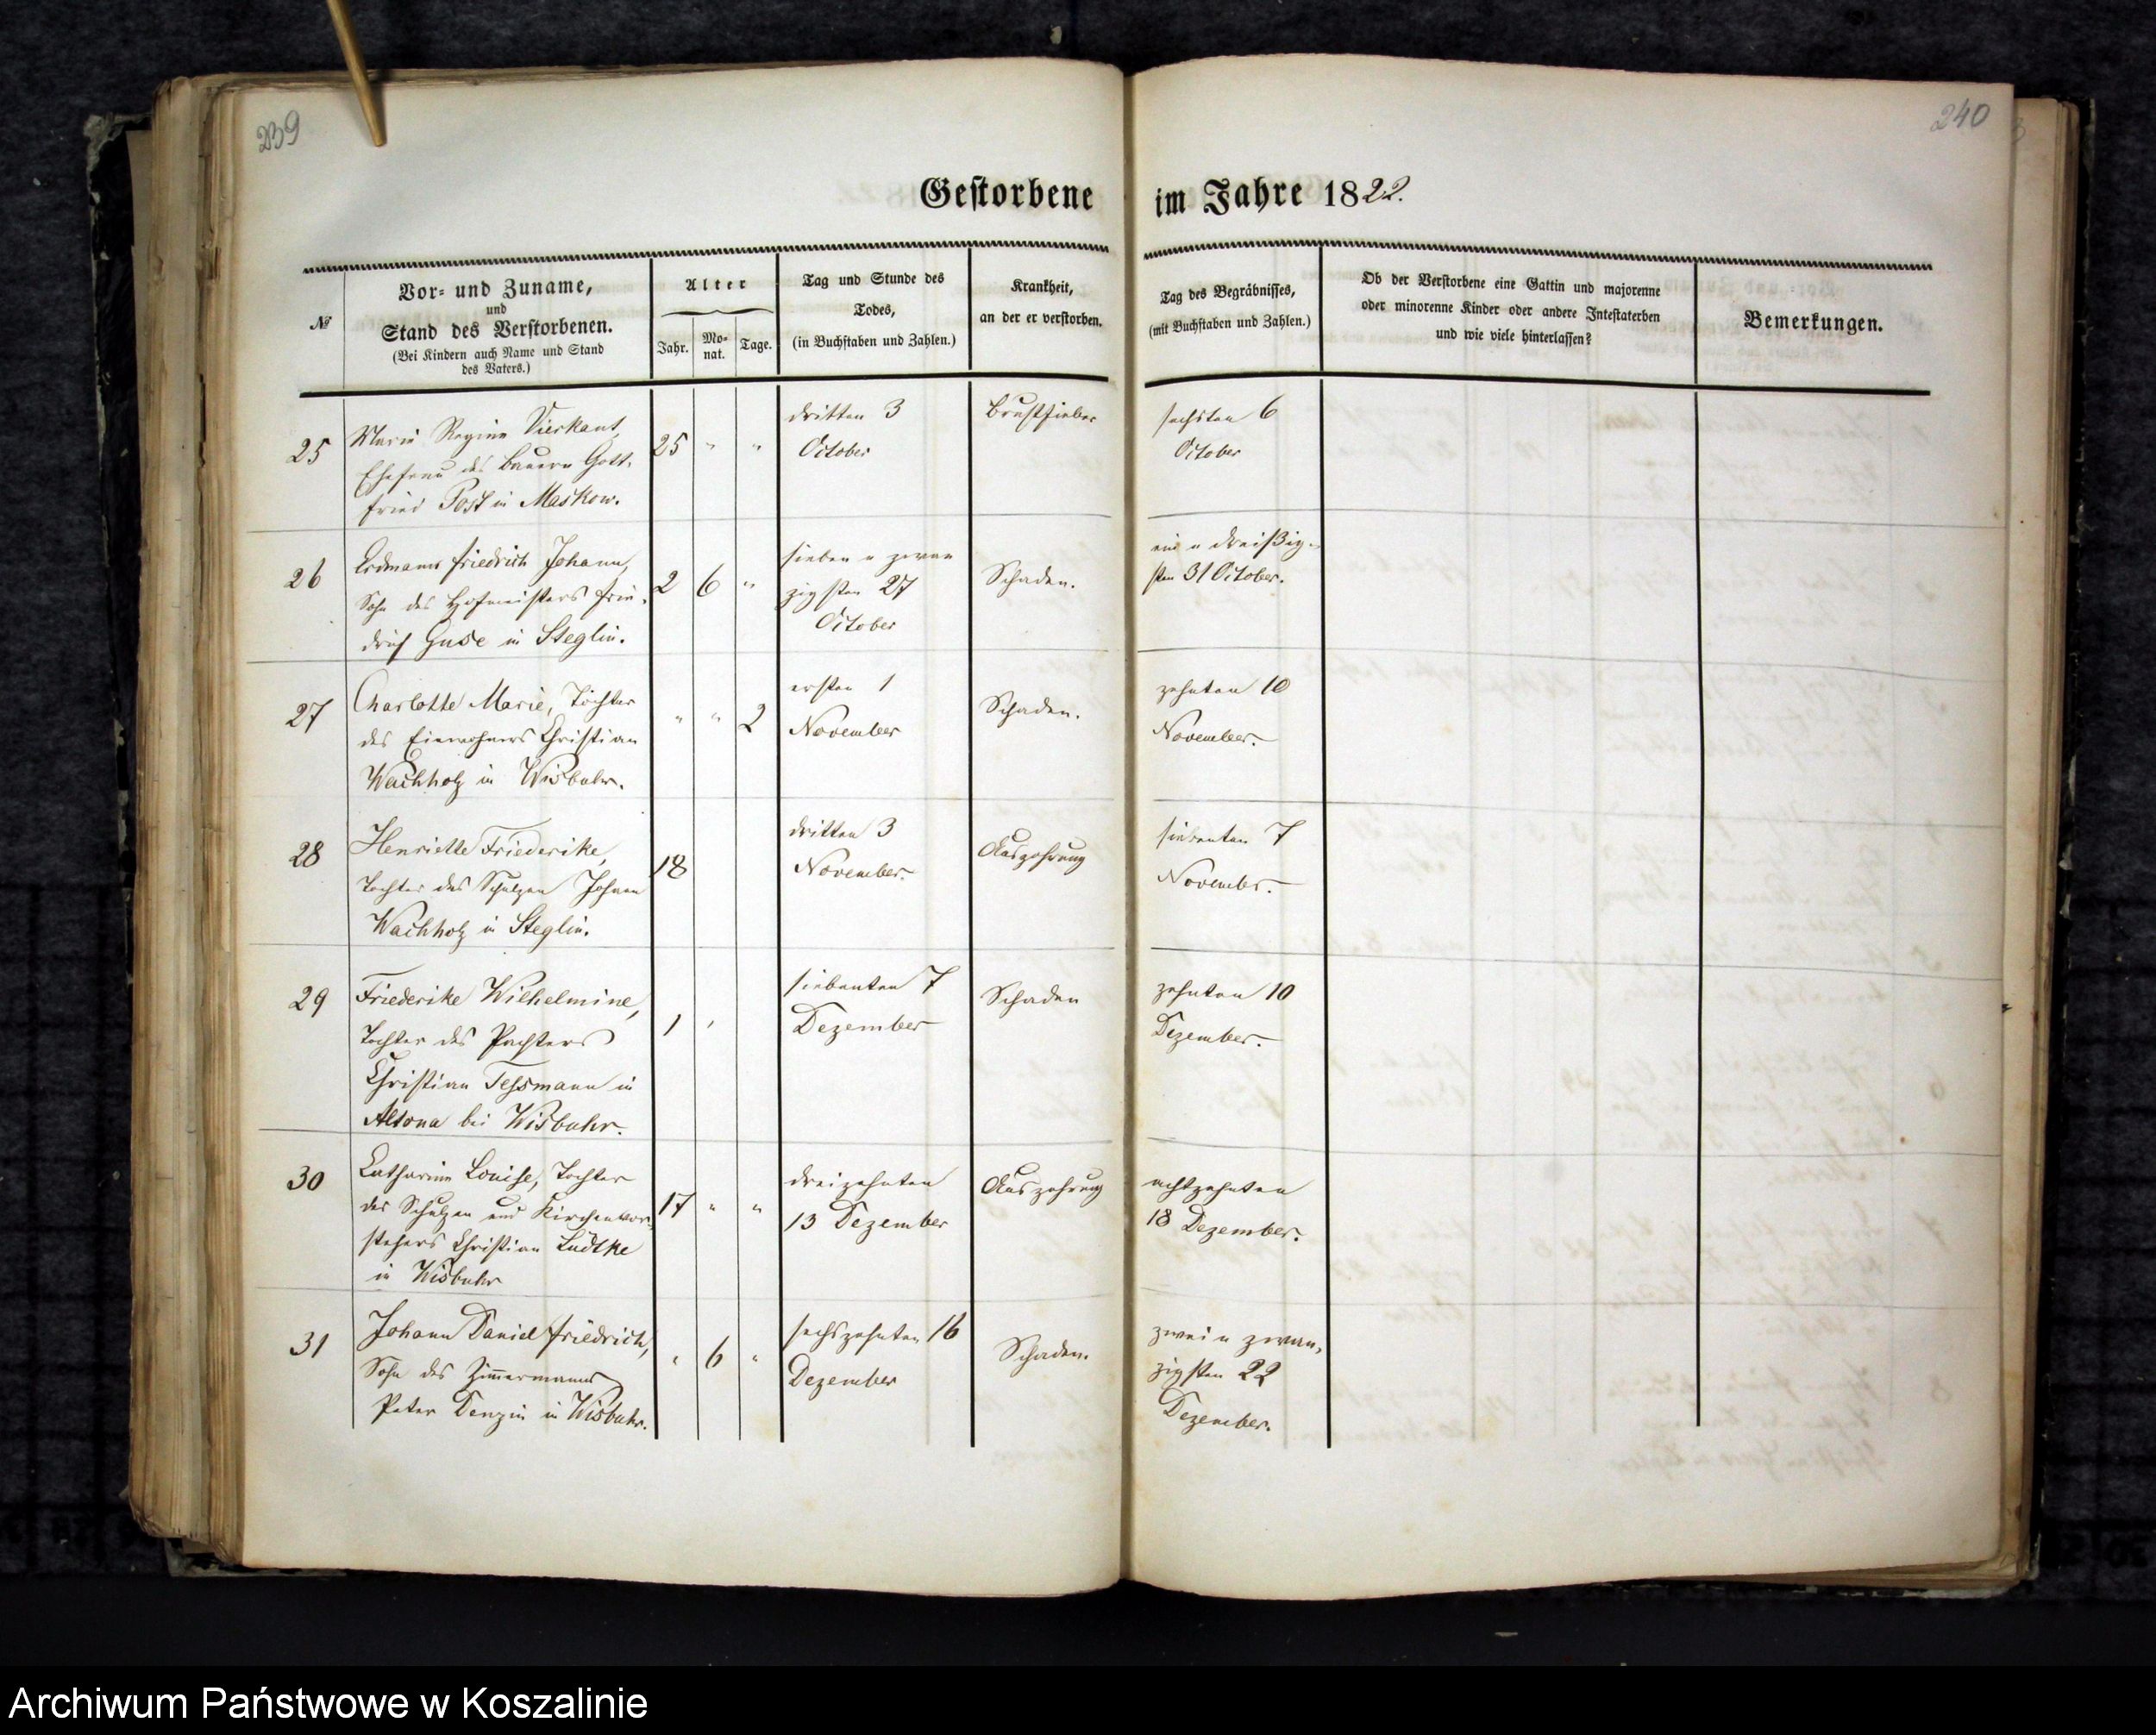 239
240
Gestorbene im Jahre 1822.
№
Vor- und Zuname,
und
Stand des Verstorbenen.
(Bei Kindern auch Name und Stand
des Vaters.)
Alter
Jahr.
Mo-
nat.
Tage.
Tag und Stunde des
Todes,
(in Buchstaben und Zahlen.)
Krankheit,
an der er verstorben.
Tag des Begräbnisses,
(mit Buchstaben und Zahlen.)
Ob der Verstorbene eine Gattin und majorenne
oder minorenne Kinder oder andere Intestaterben
und wie viele hinterlassen?
Bemerkungen.
25
Marie Regine Vierkant,
Ehefrau des Bauern Gott-
fried Post in Maskow.
25 " "
dritten 3
October
Brustfieber
sechsten 6
October
26
Erdmann Friedrich Johann,
Sohn des Hofmeisters Frie-
drich Guse in Steglin.
2 6 "
sieben u zwan
zigsten 27
October
Schaden.
ein u dreißig-
sten 31 October.
27
Charlotte Marie, Tochter
des Einwohners Christian
Wachholz in Wisbuhr.
" " 2
ersten 1
November
Schaden.
zehnten 10
November.
28
Henriette Friederike,
Tochter des Schulzen Johann
Wachholz in Steglin.
18
dritten 3
November.
Auszehrung
siebenten 7
Novembr.
29
Friederike Wilhelmine,
Tochter des Pachters
Christian Tessmann in
Altona bei Wisbuhr.
1 "
siebenten 7
Dezember
Schaden
zehnten 10
Dezember.
30
Catharine Louise, Tochter
des Schulzen und Kirchenvor-
stehers Christian Lüdtke
in Wisbuhr
17 " "
dreizehnten
13 Dezember
Auszehrung
achtzehnten
18 Dezember.
31
Johann Daniel Friedrich,
Sohn des Zimmermanns
Peter Denzin in Wisbuhr.
" 6 "
sechszehnten 16
Dezember
Schaden.
zwei u zwan-
zigsten 22
Dezember.
Archiwum Państwowe w Koszalinie